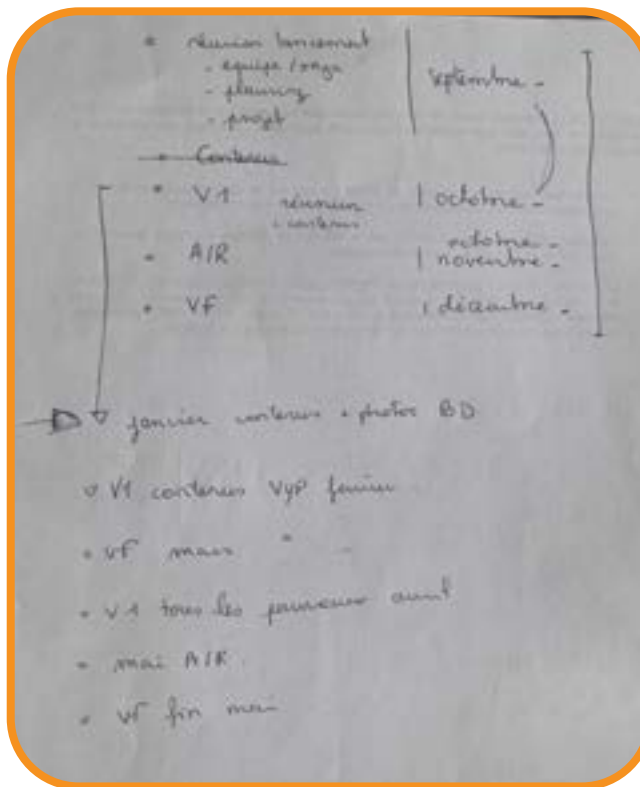 • réunion lancement
- équipe / orga
- planning
- projet
septembre -
• Contenus
• V1 réunion contenus | octobre -
• A/R octobre - | novembre -
• VF | décembre -
janvier contenus + photos BD
V1 contenus VYP février
• VF mars " -
• V1 tous les panneaux avril
• mai A/R.
• VF fin mai